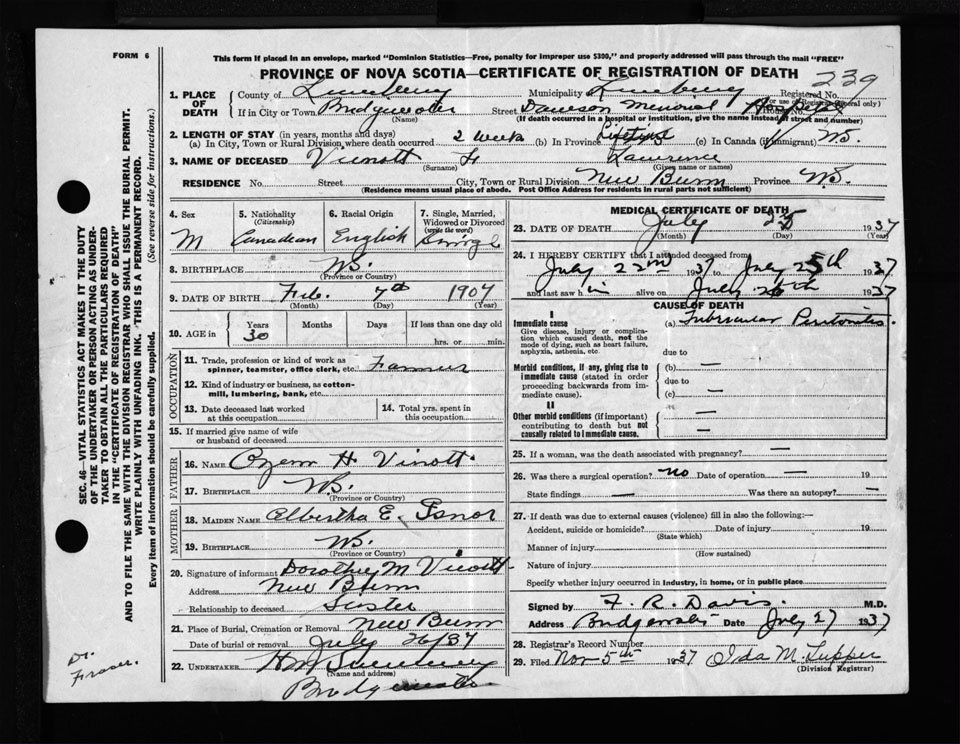 FORM 6
This form if placed in an envelope, marked "Dominion Statistics—Free, penalty for improper use $300," and properly addressed will pass through the mail "FREE"
PROVINCE OF NOVA SCOTIA—CERTIFICATE OF REGISTRATION OF DEATH
239
1. PLACE OF DEATH
County of Lunenburg Municipality Lunenburg Registered No.
If in City or Town Bridgewater Street Dawson Memorial Hospital
(Name)
(If death occurred in a hospital or institution, give the name instead of street and number)
2. LENGTH OF STAY (in years, months and days)
(a) In City, Town or Rural Division where death occurred 2 weeks (b) In Province Lifetime (c) In Canada (if immigrant) N.S.
3. NAME OF DECEASED Vienott H Lawrence
(Surname) (Given name or names)
RESIDENCE No. Street City, Town or Rural Division New Burn Province N.S.
(Residence means usual place of abode. Post Office Address for residents in rural parts not sufficient)
4. Sex M
5. Nationality (Citizenship) Canadian
6. Racial Origin English
7. Single, Married, Widowed or Divorced (write the word) Single
8. BIRTHPLACE N.S.
(Province or Country)
9. DATE OF BIRTH Feb. 7th 1907
(Month) (Day) (Year)
10. AGE in Years 30 Months Days If less than one day old
hrs. or min.
OCCUPATION
11. Trade, profession or kind of work as spinner, teamster, office clerk, etc. Farmer
12. Kind of industry or business, as cotton-mill, lumbering, bank, etc.
13. Date deceased last worked at this occupation
14. Total yrs. spent in this occupation
15. If married give name of wife or husband of deceased
FATHER
16. NAME Ozem H Vinott
17. BIRTHPLACE N.S.
(Province or Country)
MOTHER
18. MAIDEN NAME Elbertha E. Isnor
19. BIRTHPLACE N.S.
(Province or Country)
20. Signature of informant Dorothy M Vienott
Address New Burn
Relationship to deceased Sister
21. Place of Burial, Cremation or Removal New Burn
Date of burial or removal July 26/37
22. UNDERTAKER
(Name and address)
Bridgewater
MEDICAL CERTIFICATE OF DEATH
23. DATE OF DEATH July 25 1937
(Month) (Day) (Year)
24. I HEREBY CERTIFY that I attended deceased from
July 22nd 1937 to July 25th 1937
and last saw him alive on July 1937
CAUSE OF DEATH
I
Immediate cause (a) Tubercular Peritonitis.
Give disease, injury or complication which caused death, not the mode of dying, such as heart failure, asphyxia, asthenia, etc.
due to
Morbid conditions, if any, giving rise to immediate cause (stated in order proceeding backwards from immediate cause)
(b) —
due to
(c) —
II
Other morbid conditions (if important) contributing to death but not causally related to immediate cause.
—
—
25. If a woman, was the death associated with pregnancy? —
26. Was there a surgical operation? no Date of operation — 19
State findings — Was there an autopsy? —
27. If death was due to external causes (violence) fill in also the following:—
Accident, suicide or homicide? Date of injury 19
(State which)
Manner of injury
(How sustained)
Nature of injury
Specify whether injury occurred in industry, in home, or in public place
Signed by F. R. Davis. M.D.
Address Bridgewater Date July 27 1937
28. Registrar's Record Number
29. Filed Nov 5th 1937 Ida M. Tupper
(Division Registrar)
SEC. 46—VITAL STATISTICS ACT MAKES IT THE DUTY
OF THE UNDERTAKER OR PERSON ACTING AS UNDER-
TAKER TO OBTAIN ALL THE PARTICULARS REQUIRED
IN THE "CERTIFICATE OF REGISTRATION OF DEATH"
AND TO FILE THE SAME WITH THE DIVISION REGISTRAR WHO SHALL ISSUE THE BURIAL PERMIT.
WRITE PLAINLY WITH UNFADING INK. THIS IS A PERMANENT RECORD.
Every item of information should be carefully supplied. (See reverse side for instructions.)
Dr.